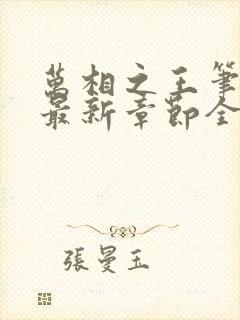 萬相之王筆
最新章節全
張曼玉